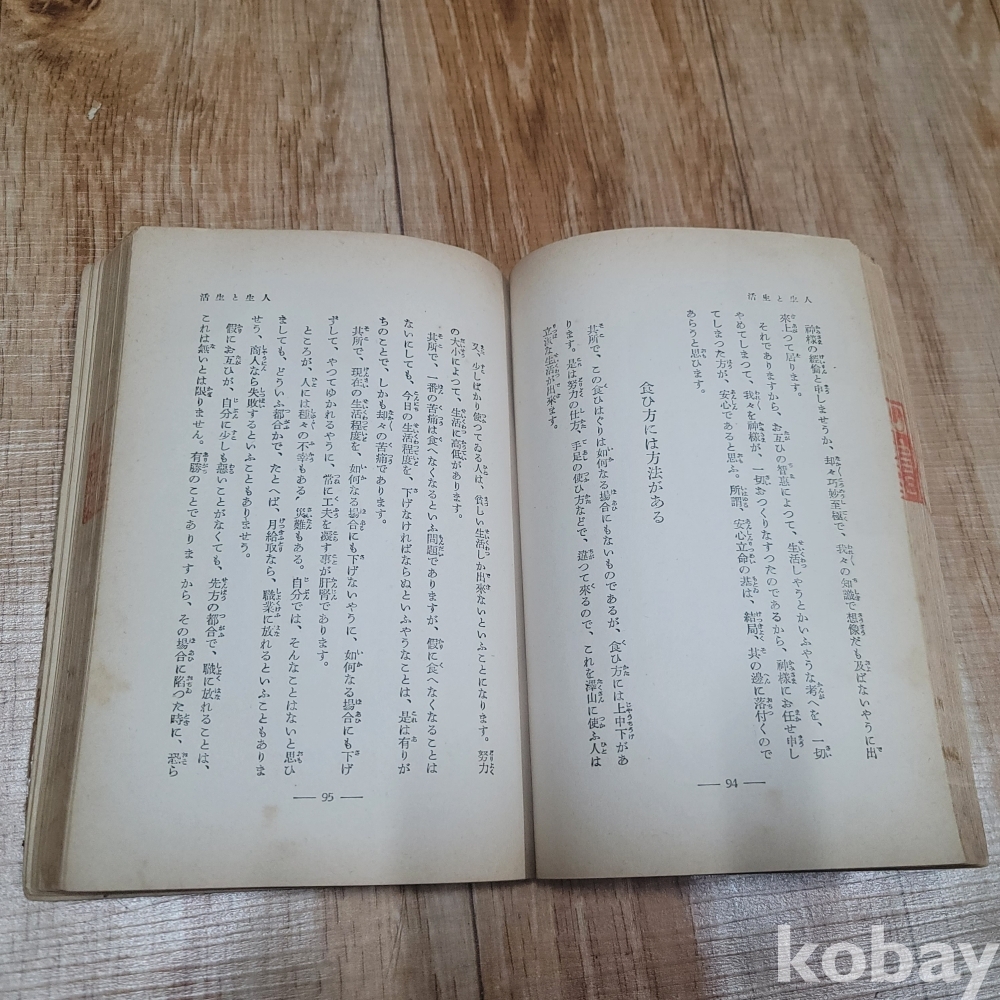 人生と生活
神様の經倫と申しませうか、却々巧妙至極で、我々の知識で想像だも及ばないやうに出
來上つて居ります。
それでありますから、お互ひの智惠によつて、生活しやうとかいふやうな考へを、一切
やめてしまつて、我々を神様が、一切おつくりなすつたのであるから、神様にお任せ申し
てしまつた方が、安心であると思ふ。所謂、安心立命の基は、結局、其の邊に落付くので
あらうと思ひます。
食ひ方には方法がある
其所で、この食ひはぐりは如何なる場合にもないものであるが、食ひ方には上中下があ
ります。是は努力の仕方、手足の使ひ方などで、違つて來るので、これを澤山に使ふ人は
立派な生活が出來ます。
— 94 —
人生と生活
又、少しばかり使つてゐる人は、貧しい生活しか出來ないといふことになります。努力
の大小によつて、生活に高低があります。
其所で、一番の苦痛は食へなくなるといふ問題でありますが、假に食へなくなることは
ないにしても、今日の生活程度を、下げなければならぬといふやうなことは、是は有りが
ちのことで、しかも却々の苦痛であります。
其所で、現在の生活程度を、如何なる場合にも下げないやうに、如何なる場合にも下げ
ずして、やつてゆかれるやうに、常に工夫を凝す事が肝腎であります。
ところが、人には種々の不幸もある、災難もある。自分では、そんなことはないと思ひ
ましても、どういふ都合かで、たとへば、月給取なら、職業に放れるといふこともありま
せう、商人なら失敗するといふこともありませう。
假にお互ひが、自分に少しも惡いことがなくても、先方の都合で、職に放れることは、
これは無いとは限りません。有勝のことでありますから、その場合に陷つた時に、恐ら
— 95 —
kobay